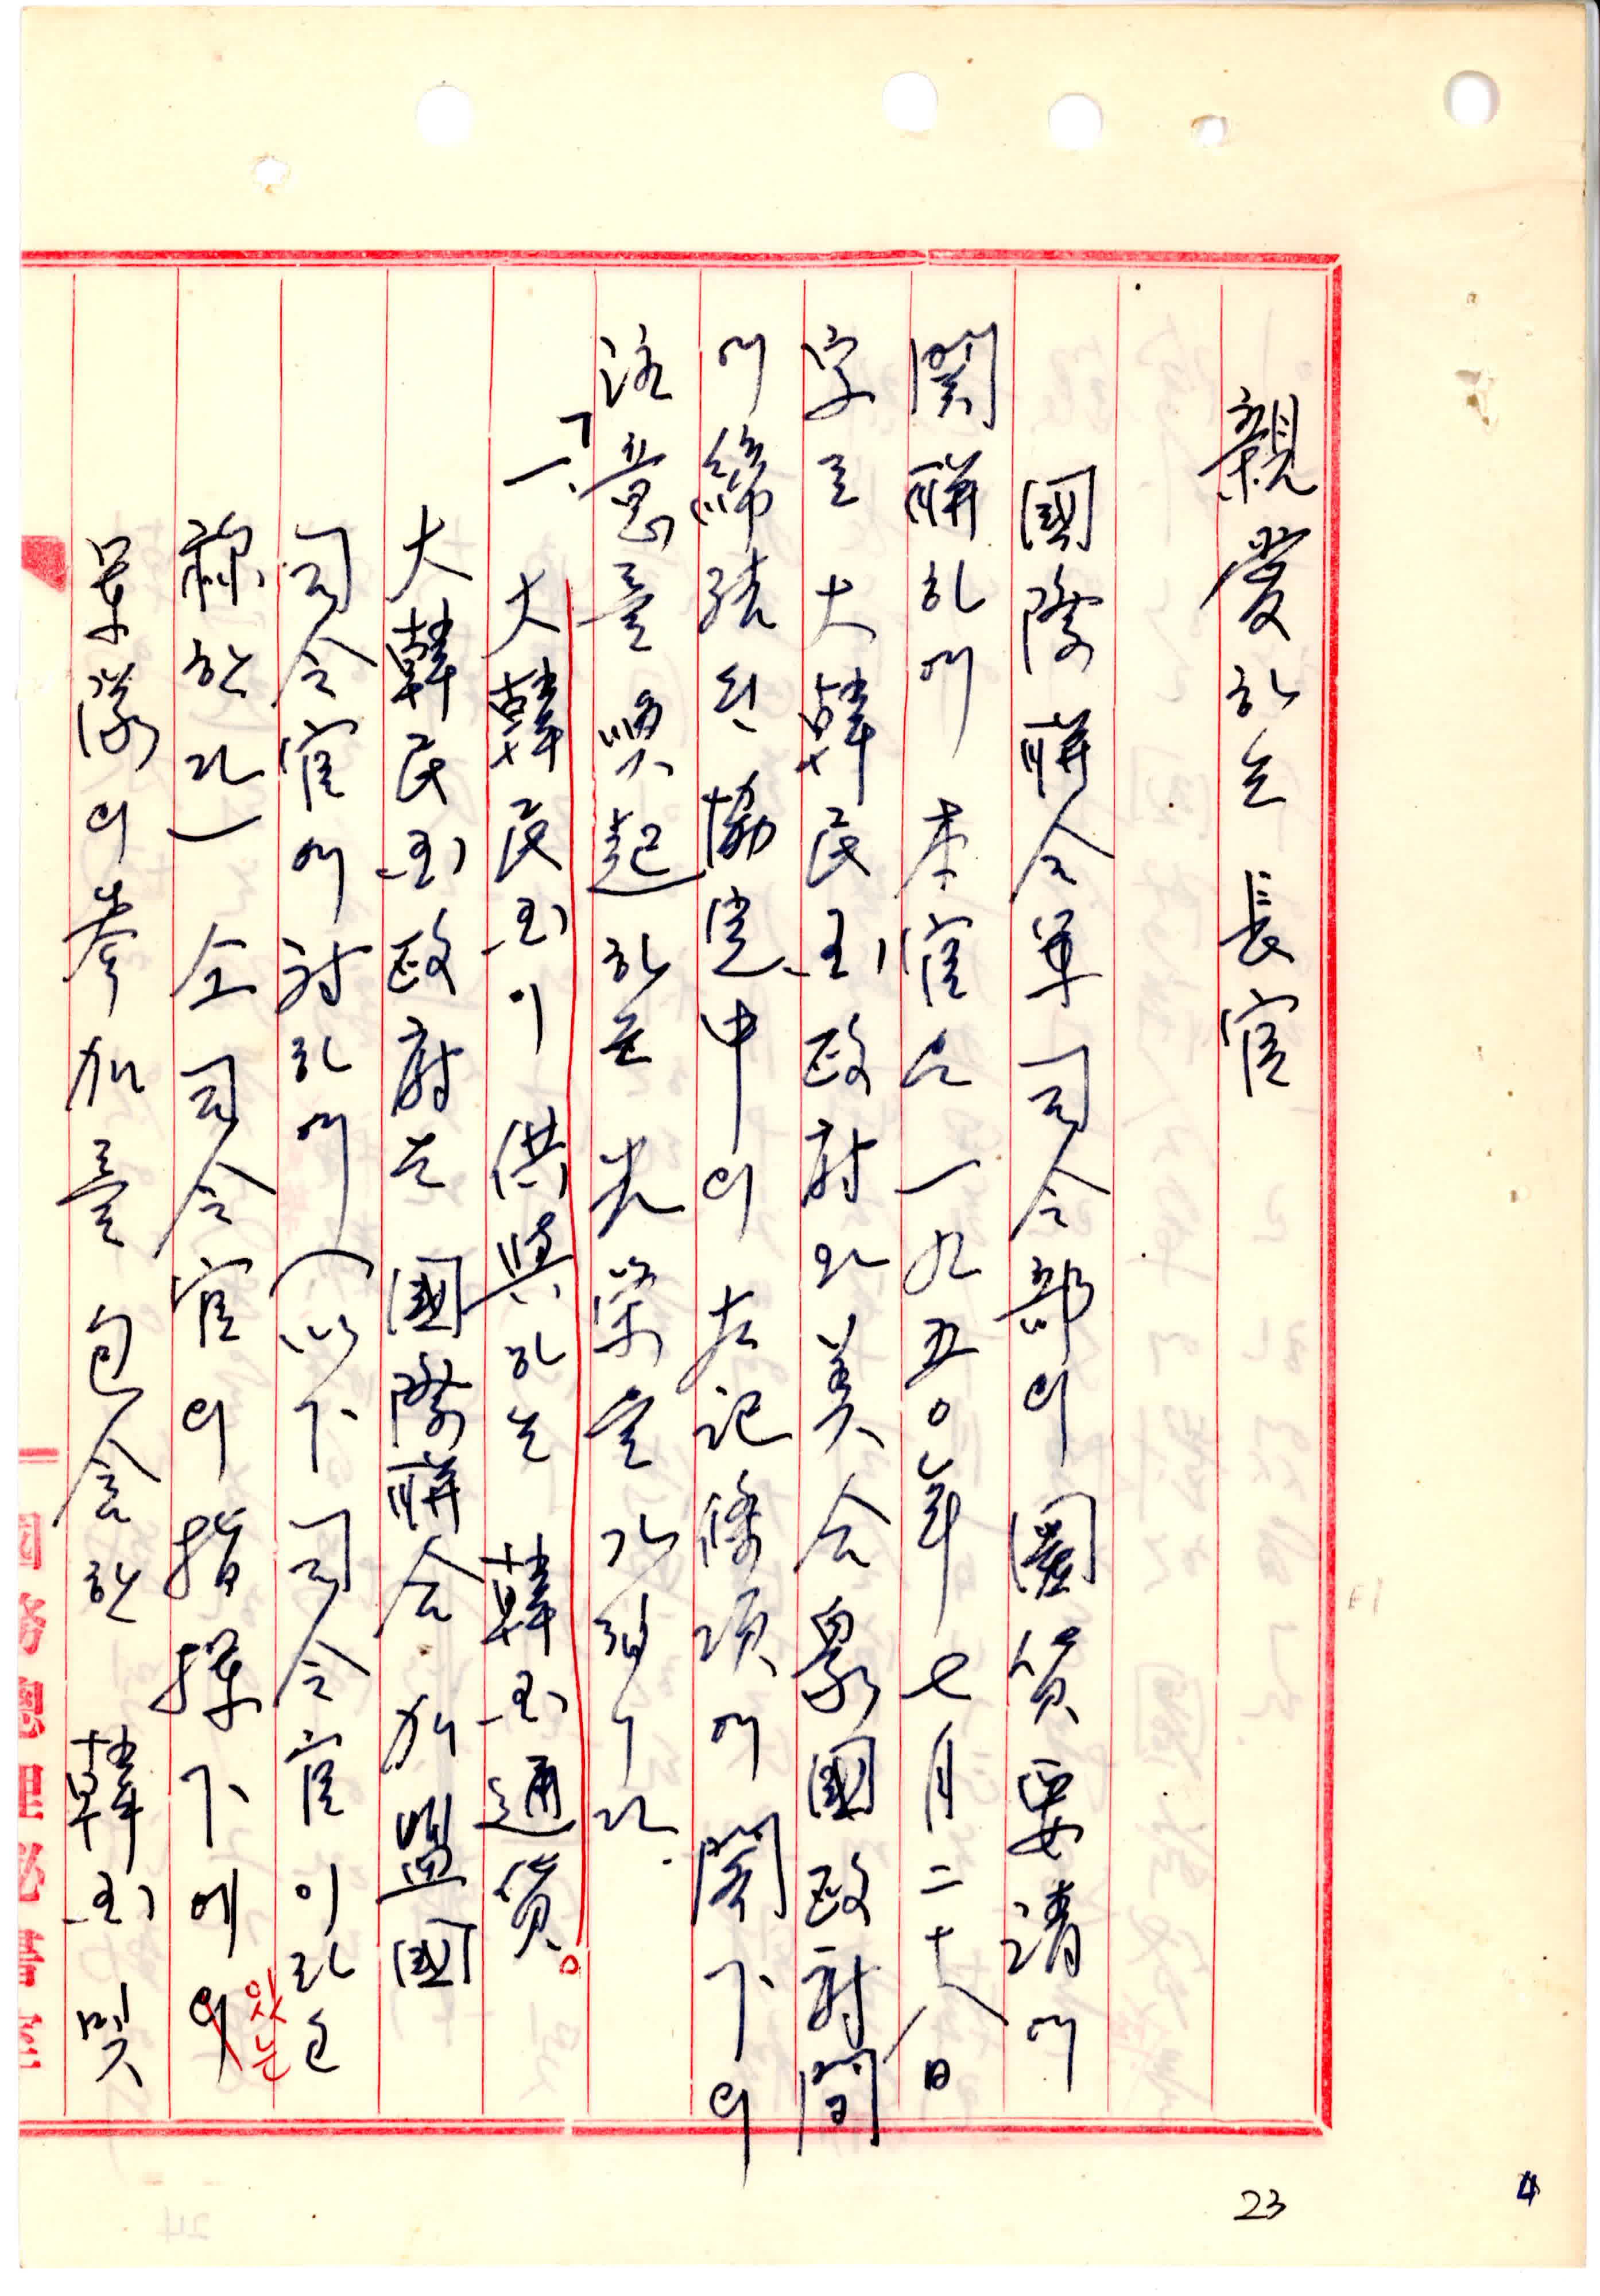 親愛하는 長官
國際聯合軍司令部의 圜貨要請에
關聯하여 本官은 一九五〇年七月二十八日
字로 大韓民国政府와 美合衆國政府間
에 締結된 協定中의 左記條項에 関下의
注意를 喚起하는 光榮을 가집니다.
「一、大韓民国이 供與하는 韓国通貨。
大韓民国政府는 國際聯合 加盟國
司令官에 対하여 (以下 司令官이라고
稱한다) 仝司令官의 指揮下에의
있는
軍隊의 参加를 包含한 韓国 및
23
4